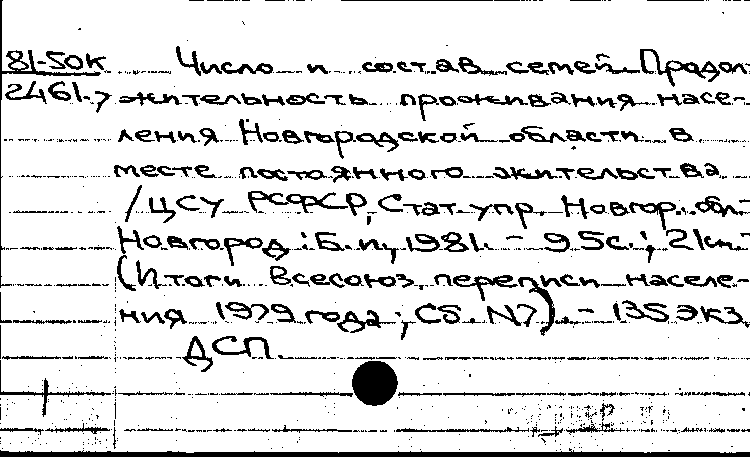 81-50к Число и состав семей. Продол-
2461-7 жительность проживания насе-
ления Новгородской области в
месте постоянного жительства
/ ЦСУ РСФСР, Стат. упр. Новгор. обл.-
Новгород: Б.и., 1981. - 95с.; 21см.-
(Итоги Всесоюз. переписи населе-
ния 1979 года; Сб. N7). - 135 экз.
ДСП.